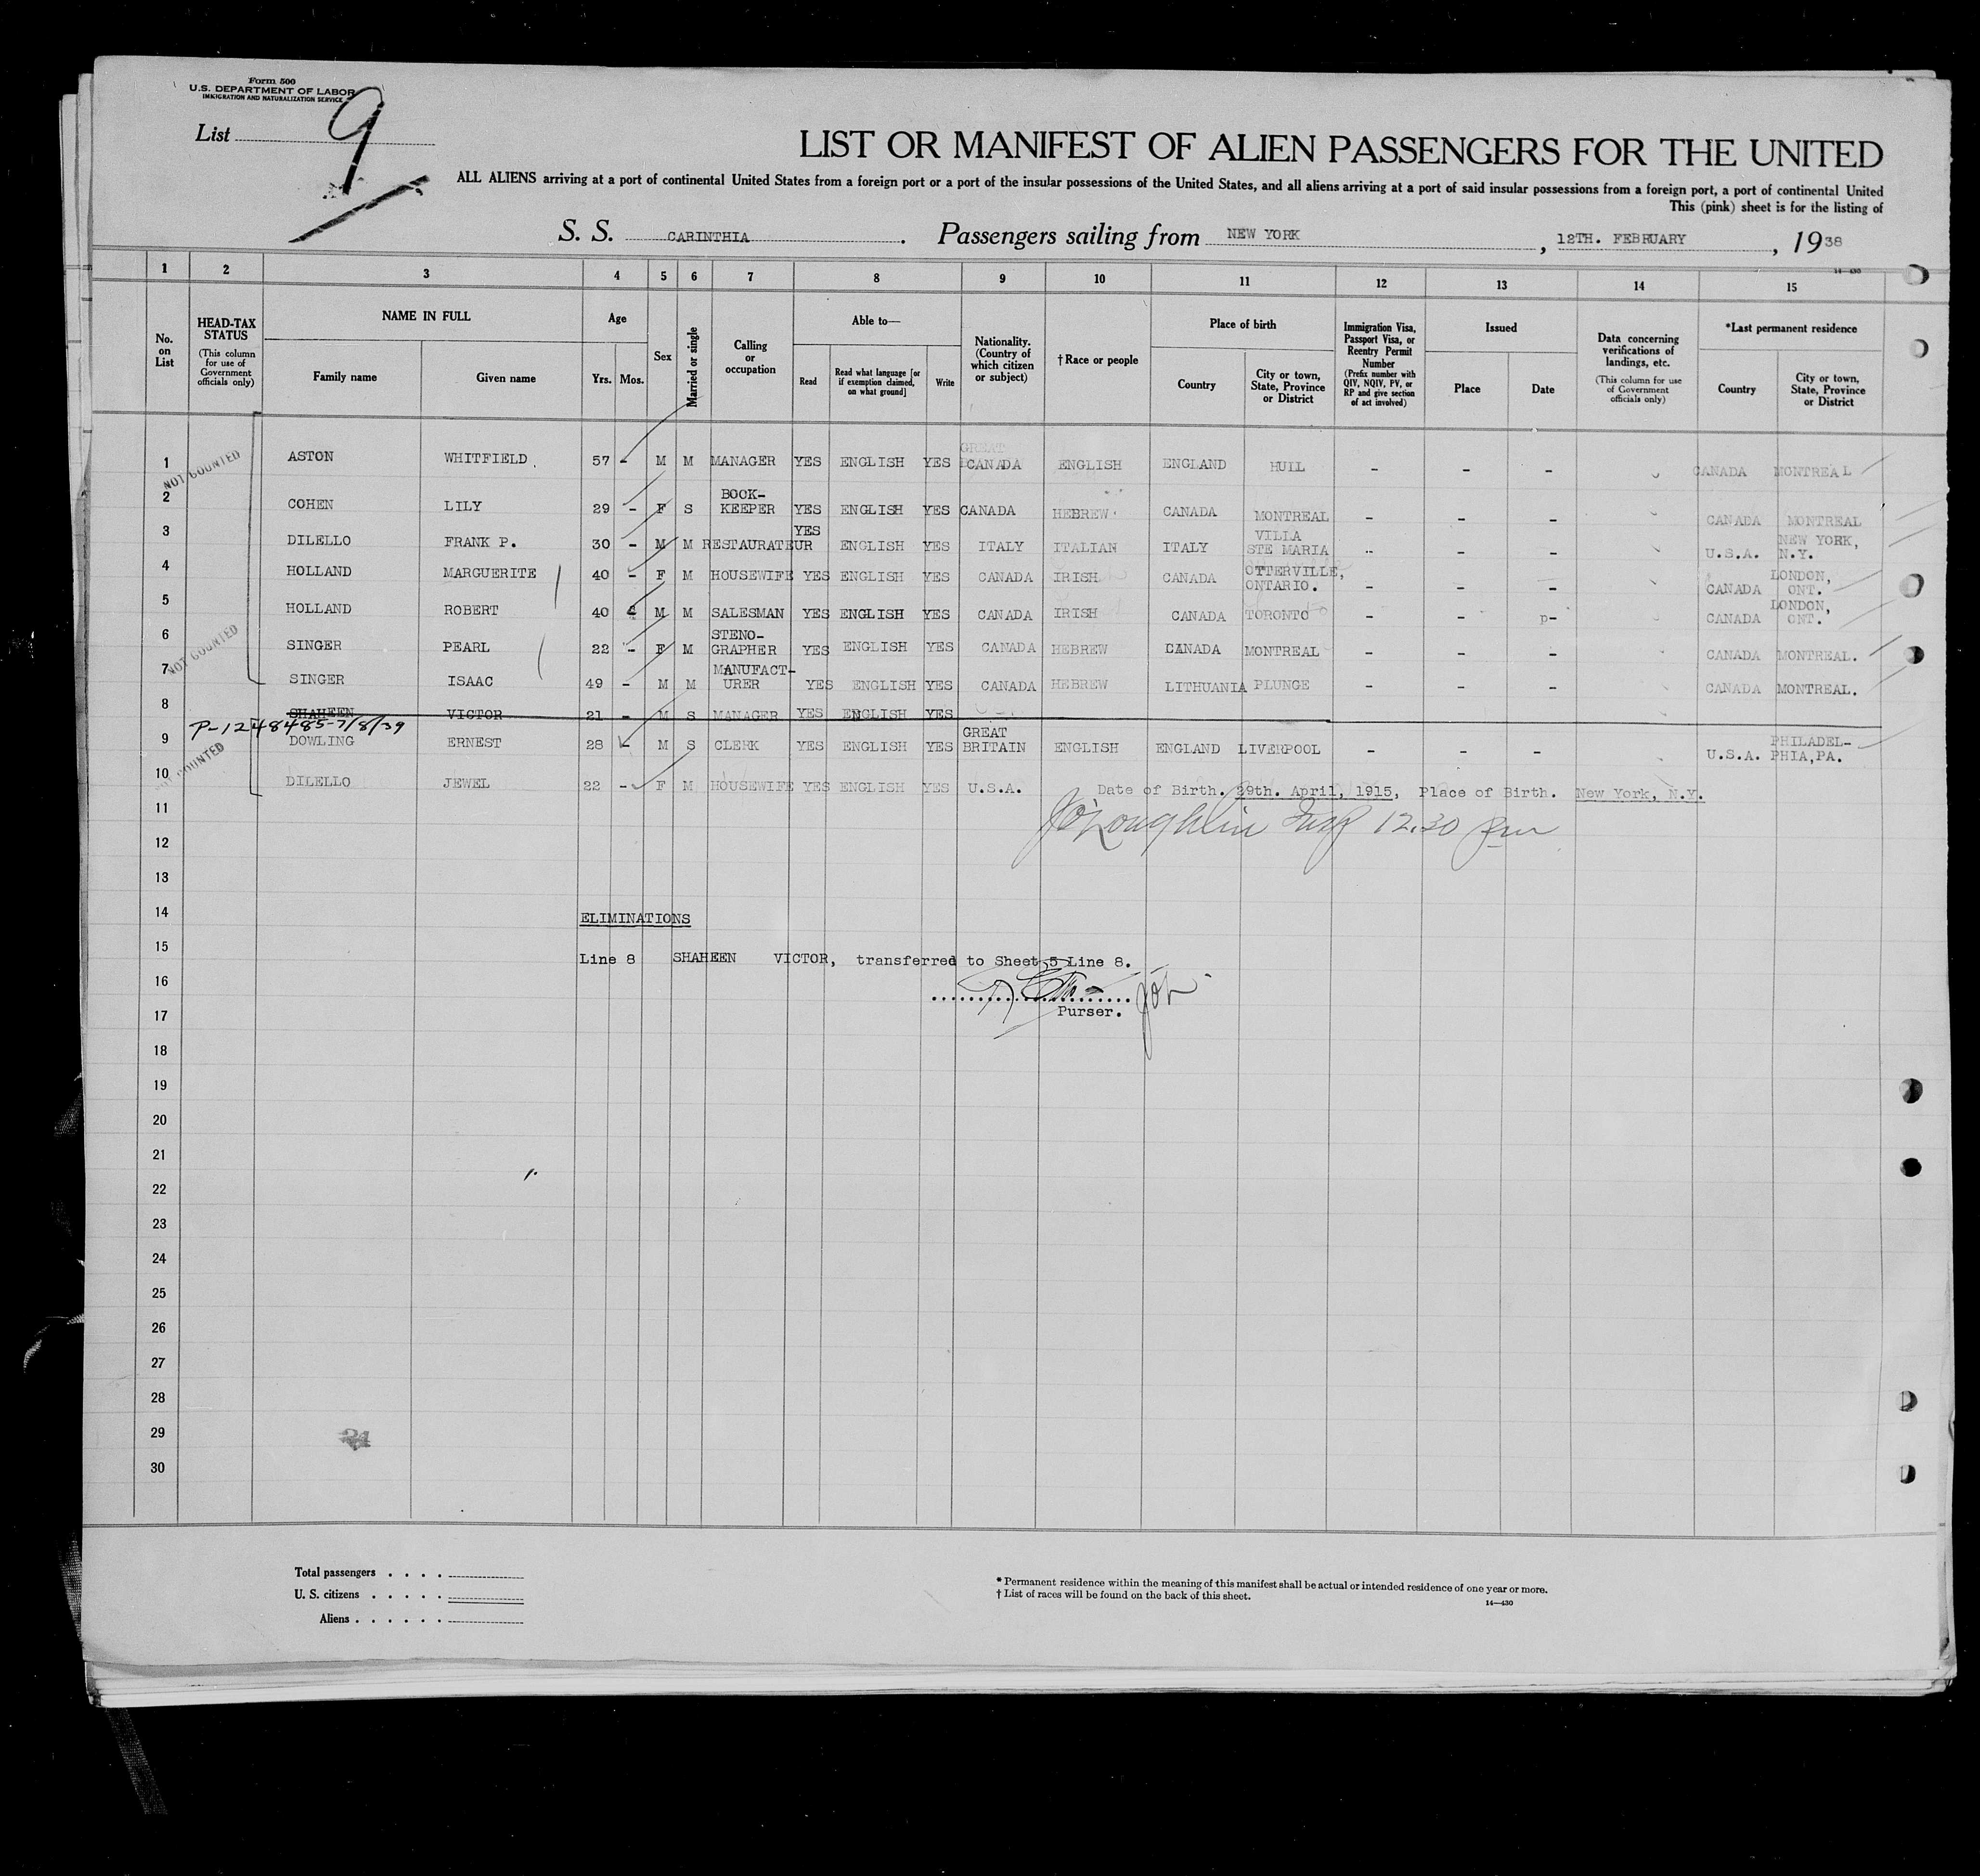 Form 500
U.S. DEPARTMENT OF LABOR
IMMIGRATION AND NATURALIZATION SERVICE
List 9
LIST OR MANIFEST OF ALIEN PASSENGERS FOR THE UNITED
ALL ALIENS arriving at a port of continental United States from a foreign port or a port of the insular possessions of the United States, and all aliens arriving at a port of said insular possessions from a foreign port, a port of continental United
This (pink) sheet is for the listing of
S. S. CARINTHIA. Passengers sailing from NEW YORK, 12TH. FEBRUARY, 1938
14—430
1 2 3 4 5 6 7 8 9 10 11 12 13 14 15
No. on List
HEAD-TAX STATUS (This column for use of Government officials only)
NAME IN FULL
Family name Given name
Age
Yrs. Mos.
Sex
Married or single
Calling or occupation
Able to—
Read Read what language [or if exemption claimed, on what ground] Write
Nationality. (Country of which citizen or subject)
† Race or people
Place of birth
Country City or town, State, Province or District
Immigration Visa, Passport Visa, or Reentry Permit Number (Prefix number with QIV, NQIV, PV, or RP and give section of act involved)
Issued
Place Date
Data concerning verifications of landings, etc. (This column for use of Government officials only)
*Last permanent residence
Country City or town, State, Province or District
1 NOT COUNTED ASTON WHITFIELD. 57 - M M MANAGER YES ENGLISH YES GREAT CANADA ENGLISH ENGLAND HULL - - - CANADA MONTREAL
2 COHEN LILY 29 - F S BOOK-KEEPER YES ENGLISH YES CANADA HEBREW CANADA MONTREAL - - - CANADA MONTREAL
3 DILELLO FRANK P. 30 - M M RESTAURATEUR YES ENGLISH YES ITALY ITALIAN ITALY VILLA STE MARIA - - - U.S.A. NEW YORK, N.Y.
4 HOLLAND MARGUERITE 40 - F M HOUSEWIFE YES ENGLISH YES CANADA IRISH CANADA OTTERVILLE, ONTARIO. - - - CANADA LONDON, ONT.
5 HOLLAND ROBERT 40 M M SALESMAN YES ENGLISH YES CANADA IRISH CANADA TORONTO - - p- CANADA LONDON, ONT.
6 NOT COUNTED SINGER PEARL 22 - F M STENO-GRAPHER YES ENGLISH YES CANADA HEBREW CANADA MONTREAL - - - CANADA MONTREAL.
7 SINGER ISAAC 49 - M M MANUFACT-URER YES ENGLISH YES CANADA HEBREW LITHUANIA PLUNGE - - - CANADA MONTREAL.
8 SHAHEEN VICTOR 21 - M S MANAGER YES ENGLISH YES
P-1248485-7/8/39
9 COUNTED DOWLING ERNEST 28 - M S CLERK YES ENGLISH YES GREAT BRITAIN ENGLISH ENGLAND LIVERPOOL - - - U.S.A. PHILADEL-PHIA,PA.
10 DILELLO JEWEL 22 - F M HOUSEWIFE YES ENGLISH YES U.S.A. Date of Birth. 29th. April, 1915, Place of Birth. New York, N.Y.
11 JO'Loughlin 12.30 pm
12
13
14 ELIMINATIONS
15 Line 8 SHAHEEN VICTOR, transferred to Sheet 5 Line 8.
16
17 Purser.
18
19
20
21
22
23
24
25
26
27
28
29
30
Total passengers
U. S. citizens
Aliens
* Permanent residence within the meaning of this manifest shall be actual or intended residence of one year or more.
† List of races will be found on the back of this sheet.
14—430